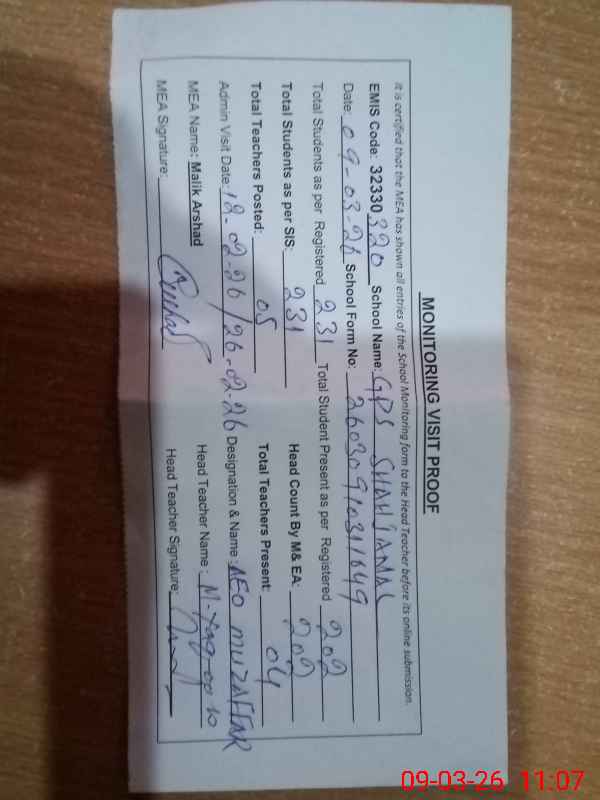 MONITORING VISIT PROOF
It is certified that the MEA has shown all entries of the School Monitoring form to the Head Teacher before its online submission.
EMIS Code: 32330320 School Name: GPS SHAH JAMAL
Date: 09-03-26 School Form No: 260309103111649
Total Students as per Registered 231 Total Student Present as per Registered 202
Total Students as per SIS: 231 Head Count By M& EA: 202
Total Teachers Posted: 05 Total Teachers Present: 04
Admin Visit Date: 12-02-26/26-02-26 Designation & Name: AEO MUZAFFAR
MEA Name: Malik Arshad Head Teacher Name: M-
MEA Signature: Head Teacher Signature:
09-03-26 11:07